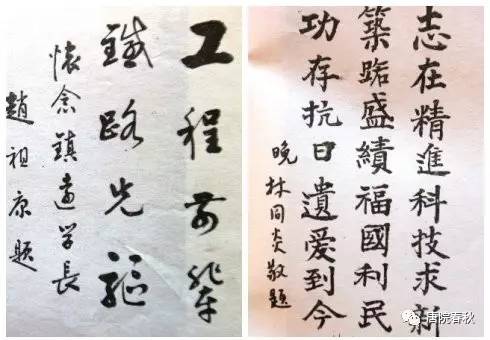 工程前辈
鐵路先驅
懷念鎮南学長
趙祖康題
志在精進科技求新
築路盛績福國利民
功存抗日遺爱到今
晚林同炎敬题
唐院春秋